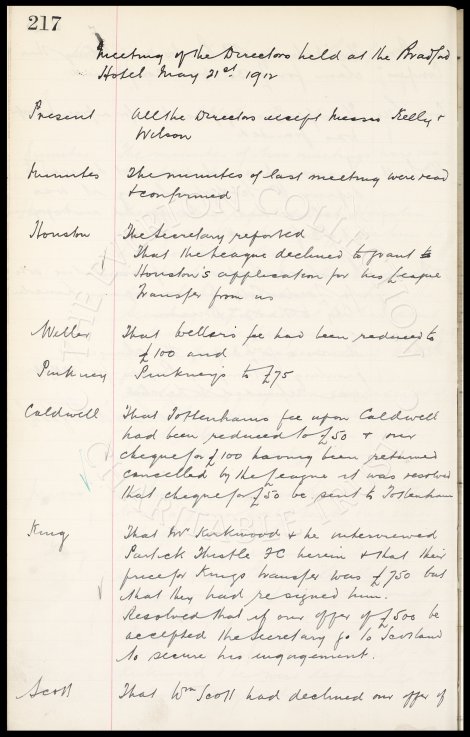 217
Meeting of the Directors held at the Bradford
Hotel May 21st 1912
Present All the Directors except Messrs Kelly &
Wilson
Minutes The minutes of last meeting were read
& confirmed
Houston The Secretary reported
That the League declined to grant
Houston's application for his League
Transfer from us
Weller That Weller's fee had been reduced to
£100 and
Pinkney Pinkney's to £75
Caldwell That Tottenhams fee upon Caldwell
had been reduced to £50 & our
cheque for £100 having been returned
cancelled by the League it was resolved
that cheque for £50 be sent to Tottenham
King That Mr Kirkwood & he interviewed
Partick Thistle FC herein & that their
price for Kings transfer was £750 but
that they had resigned him.
Resolved that if our offer of £500 be
accepted the Secretary go to Scotland
to secure his engagement.
Scott That Wm Scott had declined our offer of
THE EVERTON COLLECTION
CHARITABLE TRUST